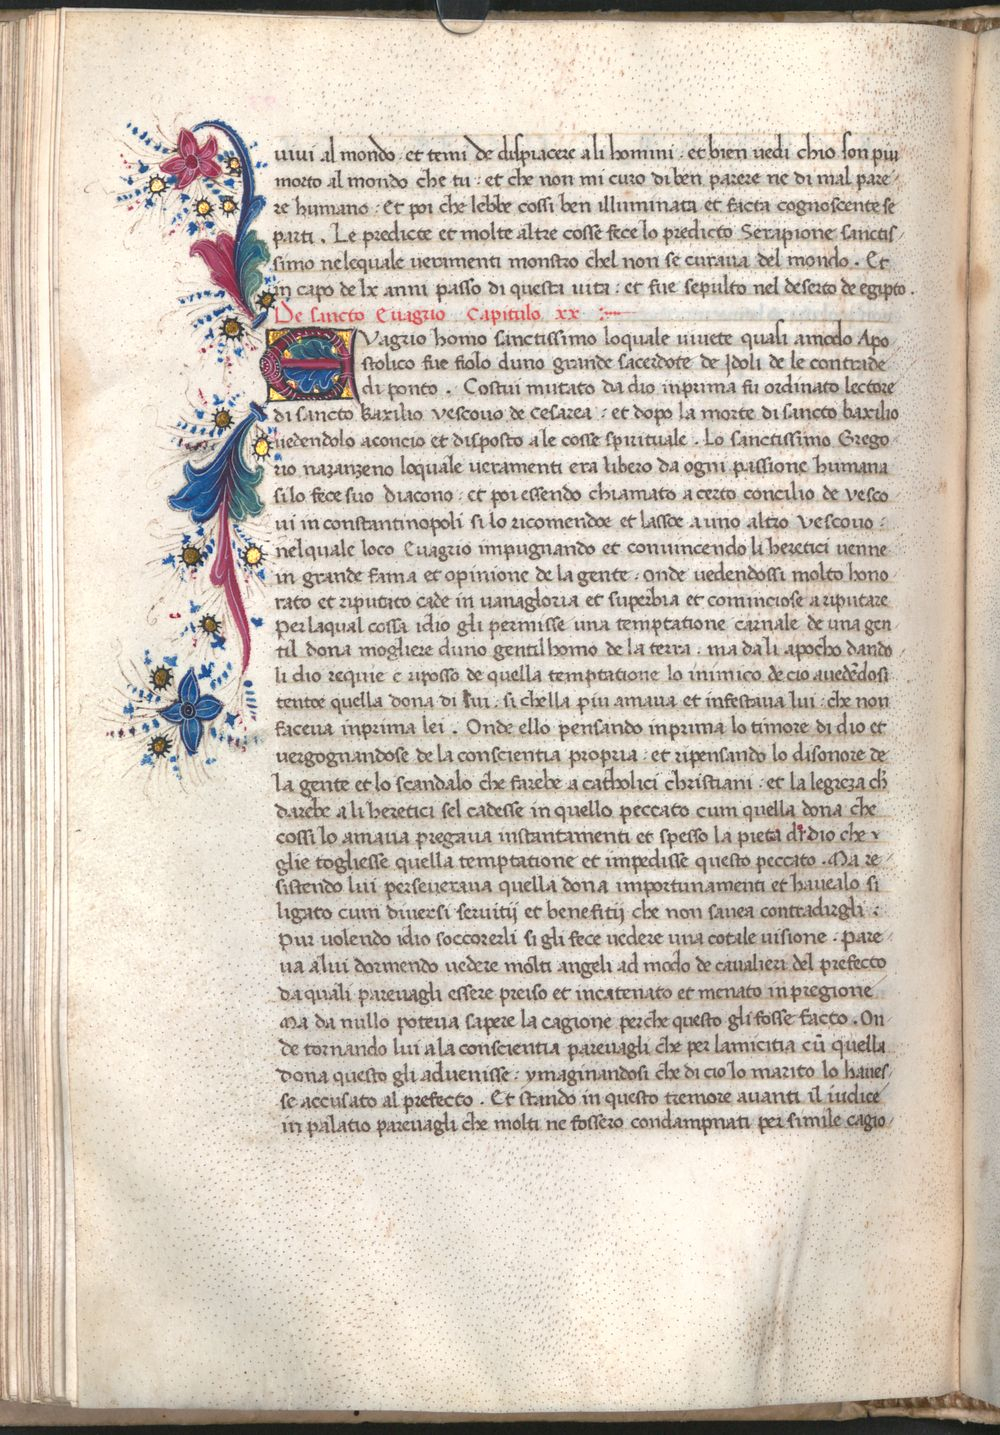 uiui al mondo · et temi de dispiacere ali homini · et bien uedi chio son piu
morto al mondo che tu · et che non mi curo di ben parere ne di mal pare
re humano · Et poi che lebbe cossi ben illuminata et facta cognoscente se
parti . Le predicte et molte altre cosse fece lo predicto Serapione sanctis
simo nelequale ueramenti monstro chel non se curaua del mondo . Et
in capo de lx anni passo di questa uita : et fue sepulto nel deserto de egipto .
De sancto Euagrio Capitulo xx
EVagrio homo sanctissimo loquale uiuete quasi amodo Apo
stolico fue fiolo duno grande sacerdote de Idoli de le contrade
di ponto . Costui mutato da dio inprima fu ordinato lectore
di sancto baxilio vescouo de cesarea : et dopo la morte di sancto baxilio
uedendolo aconcio et disposto a le cosse spirituale . Lo sanctissimo Grego
rio nazanzeno loquale ueramenti era libero da ogni passione humana
si lo fece suo diacono : et poi essendo chiamato a certo concilio de vesco
ui in constantinopoli si lo ricomendoe et lassoe a uno altro vescouo :
nelquale loco Euagrio impugnando et conuincendo li heretici uenne
in grande fama et opinione de la gente · onde uedendossi molto hono
rato et riputato cade in uanagloria et superbia et cominciose a riputare
Per laqual cossa idio gli permisse una temptatione carnale de una gen
til dona mogliere duno gentilhomo de la terra : ma da li apocho dando
li dio requie e riposso de quella temptatione lo inimico de cio auedēdosi
tentoe quella dona di lui : si chella piu amaua et infestaua lui : che non
faceua inprima lei . Onde ello pensando inprima lo timore di dio et
vergognandose de la conscientia propria : et ripensando lo disonore de
la gente et lo scandalo che farebe a catholici christiani · et la legreza cħ
darebe a li heretici sel cadesse in quello peccato cum quella dona che
cossi lo amaua pregaua instantamenti et spesso la pieta di dio che
glie togliesse quella temptatione et impedisse questo peccato . Ma re
sistendo lui perseueraua quella dona importunamenti et hauealo si
ligato cum diuersi seruitij et benefitij che non sauea contradirgli :
Pur uolendo idio soccorerli si gli fece uedere una cotale uisione . Pare
ua a lui dormendo uedere molti angeli ad modo de caualieri del prefecto
da quali pareuagli essere preiso et incatenato et menato in pregione
Ma da nullo poteua sapere la cagione perche questo gli fosse facto . On
de tornando lui a la conscientia pareuagli che per lamicitia cū quella
dona questo gli aduenisse : ymaginandosi che di cio lo marito lo haues
se accusato al prefecto . Et stando in questo tremore auanti il iudice
in palatio pareuagli che molti ne fossero condampnati per simile cagio